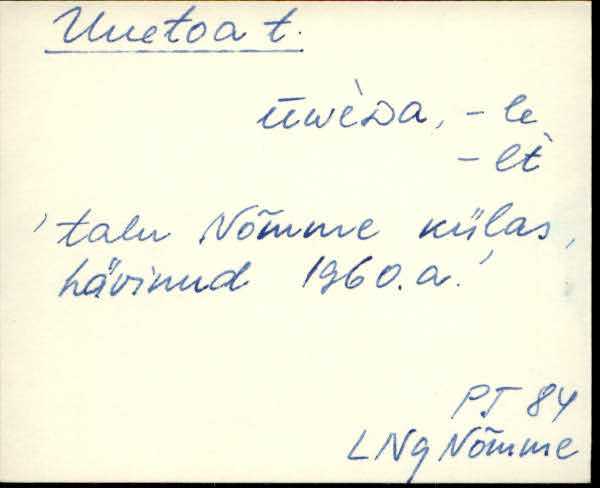 Uuetoa t.
ūwèDa, - le
- lt̀
'talu Nõmme külas,
hävinud 1960.a.'
PT 84
LNg Nõmme